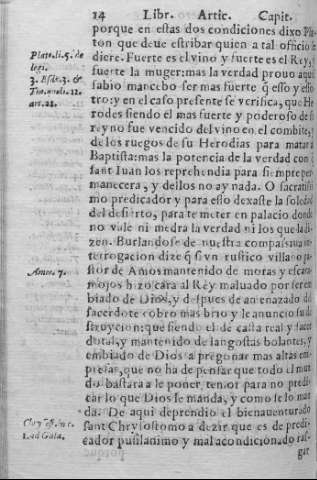 14 Libr. Artic. Capit.
porque en estas dos condiciones dixo Pla
Plato. li. 5. de
ton que deue estribar quien a tal officio se
legi.
diere. Fuerte es el vino y fuerte es el Rey, y
3. Esdr. 3. &
fuerte la muger; mas la verdad prouo aquel
sabio mancebo ser mas fuerte q̃ esso y esso
tro: y en el caso presente se verifica, que He
rodes siendo el mas fuerte y poderoso de su
reyno fue vencido del vino en el combite, y
de los ruegos de su Herodias para matar a
Baptista: mas la potencia de la verdad con q̃
sant Iuan los reprehendia para siempre per
manecera, y dellos no ay nada. O sacratissi
mo predicador y para esto dexaste la soledad
del desierto, para te meter en palacio donde
no vale ni medra la verdad ni los que la di
zen. Burlandose de nuestra compassiua in
terrogacion dize q̃ si vn rustico villano pa-
Amos. 7.
stor de Amos mantenido de moras y escara
mojos hizo cara al Rey maluado por ser em
biado de Dios, y despues de amenazado del
sacerdote cobro mas brio y le anuncio su de
struycion: que siendo el de casta real y sacer
dotal, y mantenido de langostas bolantes, y
embiado de Dios a pregonar mas altas em-
presas, que no ha de pensar que todo el mun
do bastara a le poner temor para no predi
car lo que Dios le manda, y como se lo man
da. De aqui deprendio el bienauenturado
sant Chrysostomo a dezir que es de predi-
cador pusilanimo y mal acondicionado ras-
gar